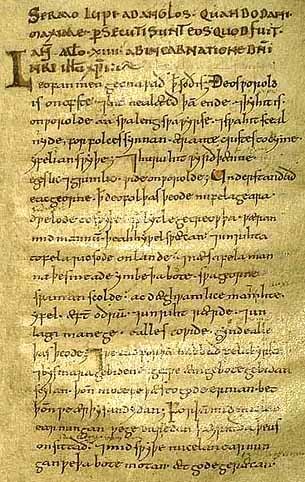 SERMO LUPI AD ANGLOS · QUANDO DANI
MAXIME PSECUTI SUNT EOS QUOD FUIT
ANN MILL XIIII AB INCARNATIONE DNI
NRI IESU XPI
Leofan men gecnawað ꝥ soð is ðeos worold
is on ofste ⁊ hit nealæcð þam ende ⁊ þy hit is
on worolde aa swa leng swa wyrse ⁊ swa hit sceal
nyde for folces synnan ær antecristes tocyme
yfelian swyþe ⁊ huru hit wyrð þænne
egeslic ⁊ grimlic wide on worolde Understandað
eac georne ꝥ deofol þas þeode nu fela geara
dwelode to swyþe ⁊ ꝥ lytle getreowþa wæran
mid mannum þeah hy wel spræcan ⁊ unrihta
to fela ricsode on lande ⁊ næs a fela man
na þe smeade ymbe þa bote swa georne
swa man scolde ac dæghwamlice man ihte
yfel æft oðrum ⁊ unriht rærde ⁊ un
laga manege ealles to wide gynd ealle
þas þeode ⁊ we eac forþam habbað fela byrsta
⁊ bysmara gebiden ⁊ gif we ænige bote gebidan
scylan þonn mote we þæs to gode earnian bet
þonn we ær þysan dydan Forþam mid miclan
earnungan we geearnedan þa yrmða þe us
onsittað ⁊ mid swyþe micelan earnun
gan we þa bote motan æt gode geræcan